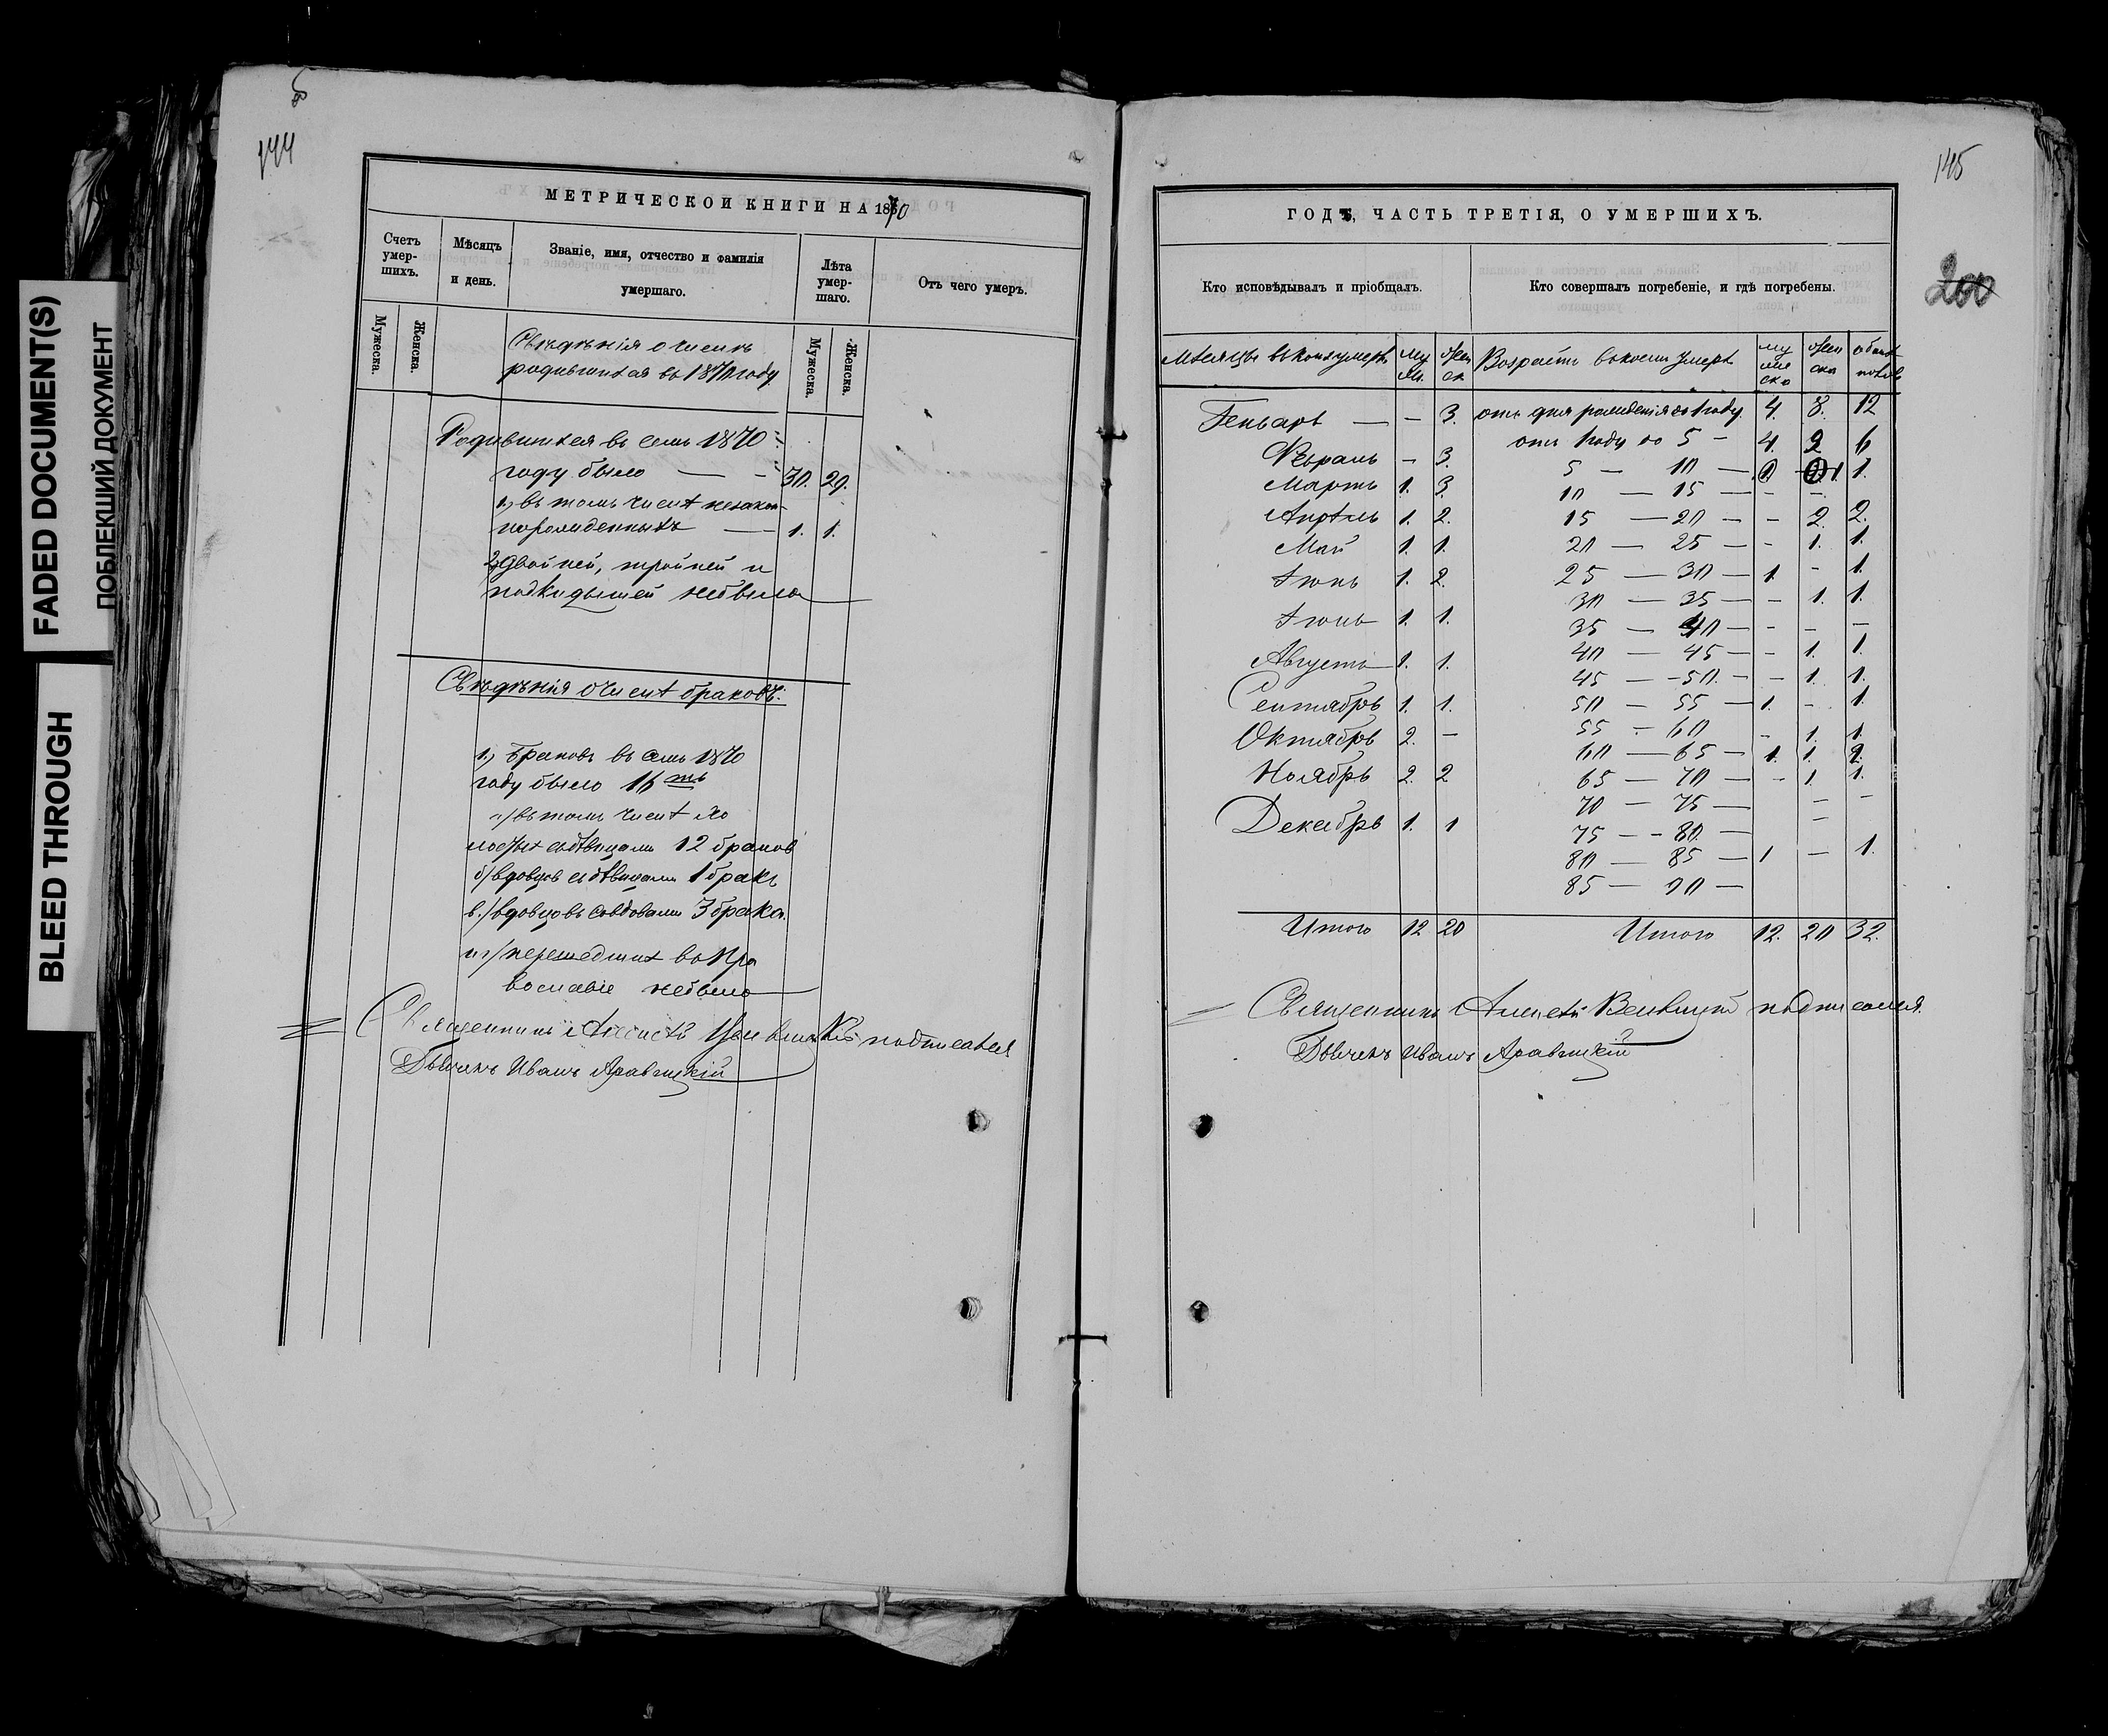 FADED DOCUMENT(S)
ПОБЛЕКШИЙ ДОКУМЕНТ
BLEED THROUGH
144
МЕТРИЧЕСКОЙ КНИГИ НА 1870
Счетъ умер-шихъ.
Мѣсяцъ и день.
Званіе, имя, отчество и фамилія умершаго.
Лѣта умер-шаго.
Отъ чего умеръ.
Мужеска.
Женска.
Мужеска.
Женска.
Свѣдѣнія о числѣ
родившихся въ 1870 году
Родившихся въ семъ 1870
году было — 30. 29.
1.) въ томъ числѣ незакон-
норожденныхъ — 1. 1.
2) двойней, тройней и
подкидышей небыло
Свѣдѣнія о числѣ браковъ:
1.) Браковъ въ семъ 1870
году было 16ть
а) въ томъ числѣ хо
лостых съ дѣвицами 12 браков
б) вдовцов съ дѣвицами 1 бракъ
в.) вдовцовъ со вдовами 3 брака.
перешедших въ Пра
вославіе небыло
Священникъ Алексѣй подписался
Дьячекъ Иванъ Аравицкій
145
200
ГОДЪ, ЧАСТЬ ТРЕТІЯ, О УМЕРШИХЪ.
Кто исповѣдывалъ и пріобщалъ.
Кто совершалъ погребеніе, и гдѣ погребены.
Мѣсяцы въ коихъ умерли
Му ж.
Жен ск
Возрастъ въ коемъ умерли
му же ска
жен ска
обоих половъ
Генварь — — 3. отъ дня рожденія до 1 году. 4. 8. 12
Февраль - 3. отъ 1 году до 5 - 4. 2 6
Мартъ 1. 3. 5 — 10 — 1. 1.
10 — 15 — - -
Апрѣль 1. 2. 15 — 20 - - 2. 2.
Май 1. 1. 20 — 25 - - 1. 1.
Іюнь 1. 2. 25 — 30 — 1. - 1.
30 — 35 — - 1. 1.
Іюль 1. 1. 35 — 40 — - - —
Августъ 1. 1. 40 — 45 — - 1. 1.
45 — 50. - - 1. 1.
Сентябрь 1. 1. 50 — 55 — 1. - 1.
Октябрь 2. - 55 - 60 - 1. 1.
60 — 65 - 1. 1. 2.
Ноябрь 2. 2 65 — 70 — - 1. 1.
70 — 75 — - -
Декабрь 1. 1 75 - - 80. — -
80 — 85 — 1 — 1.
85 — 90 —
Итого 12 20 Итого 12. 20 32.
Священникъ Алексѣй подписался.
Дьячекъ Иванъ Аравицкій